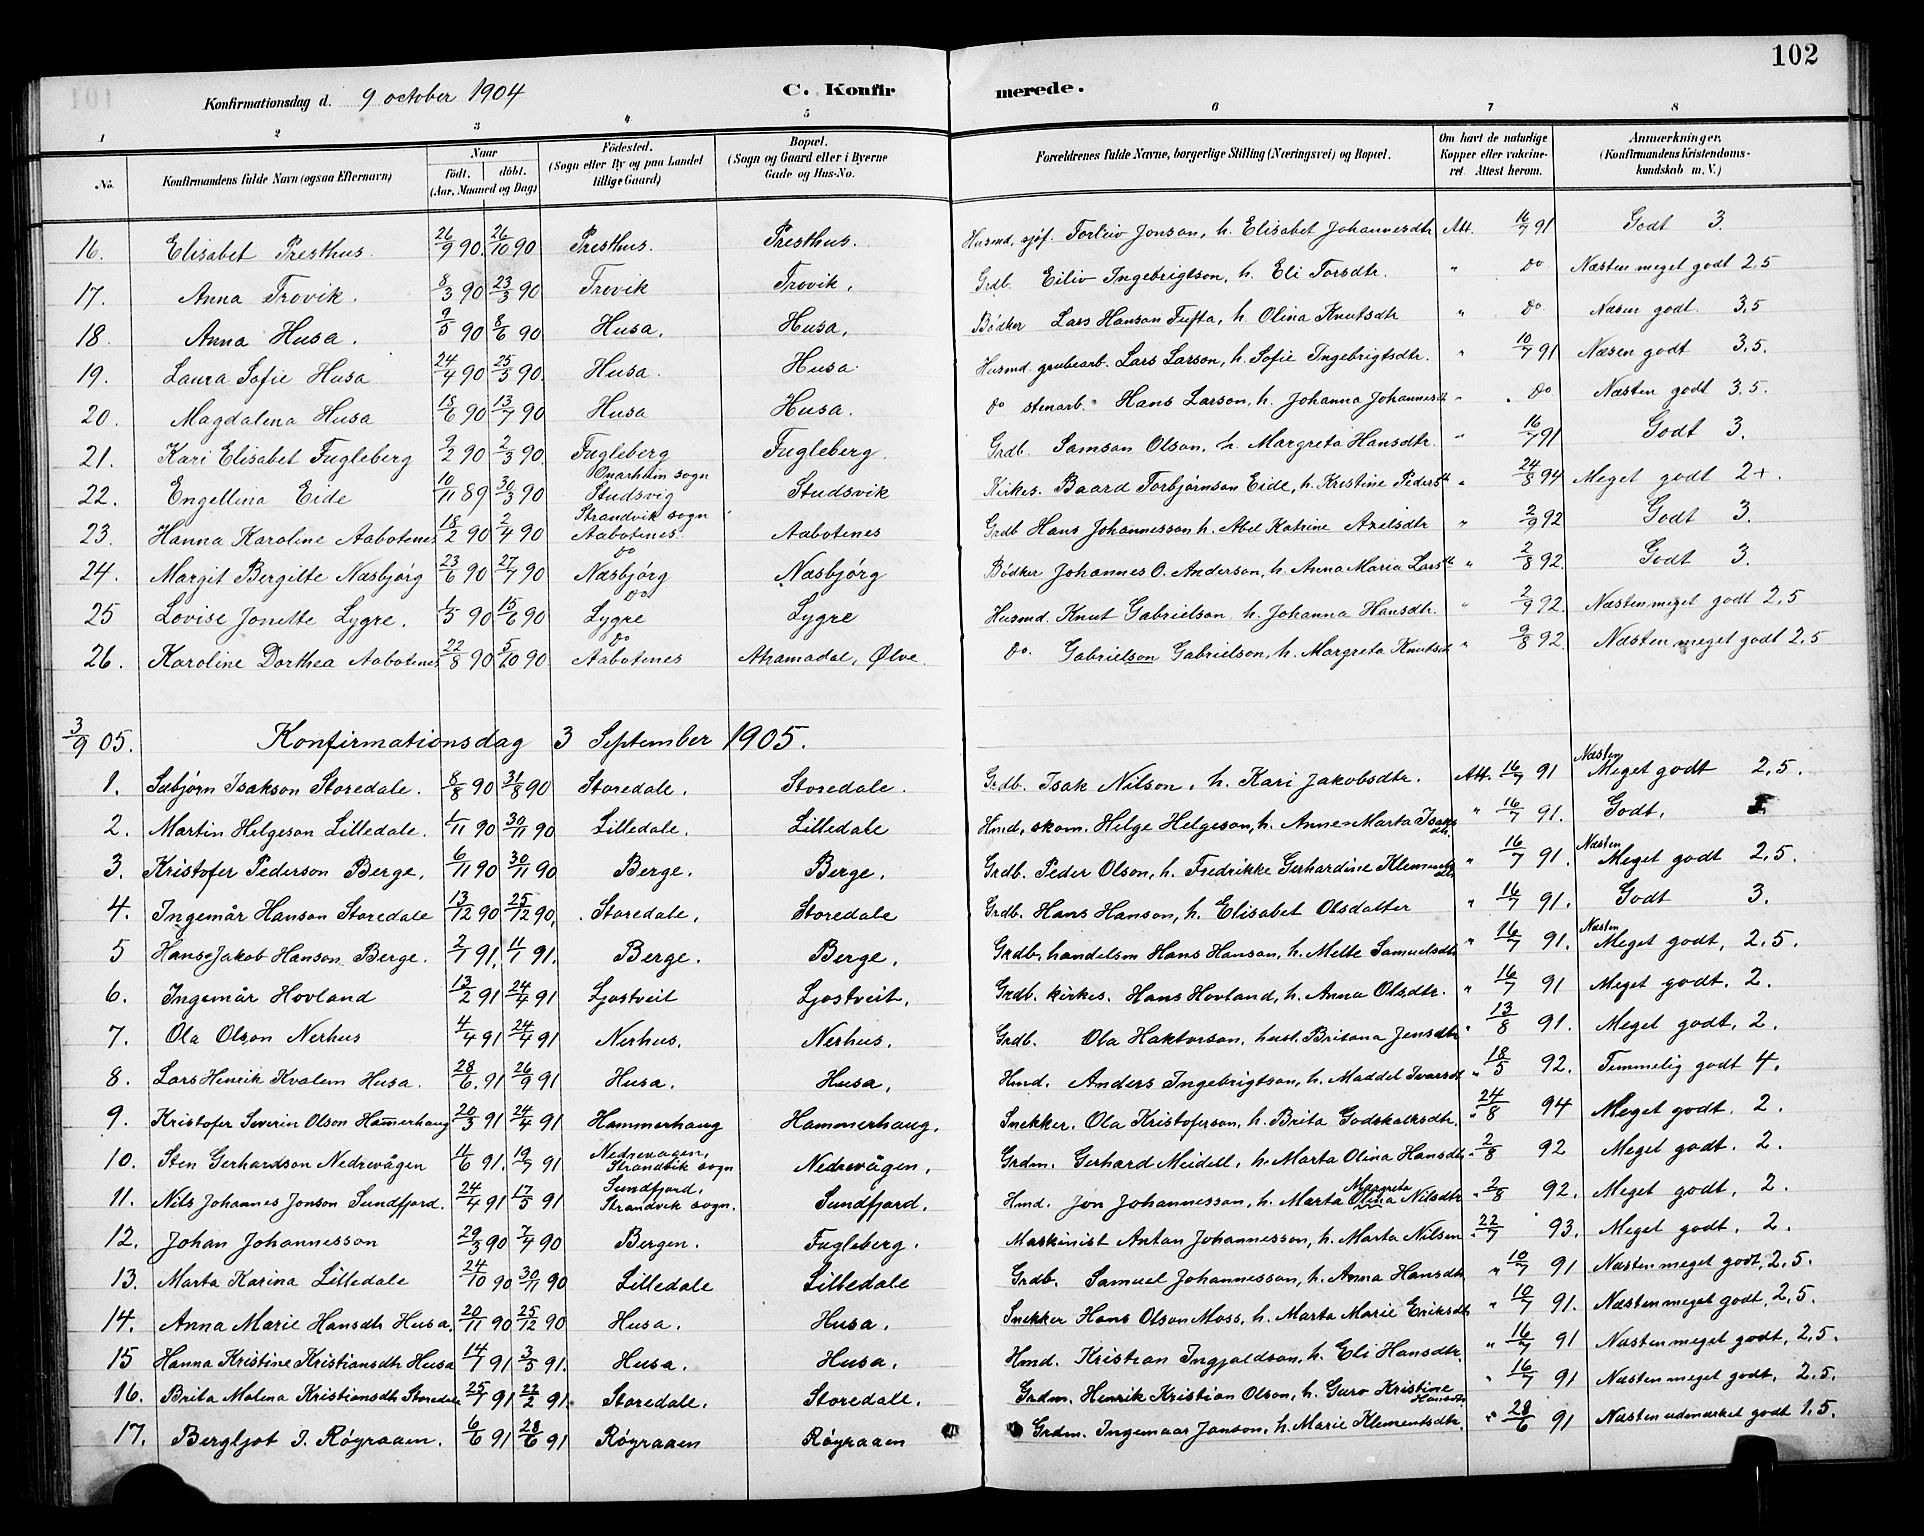 102
Konfirmationsdag d. 9 october 1904 C. Konfirmerede.
1 2 3 4 5 6 7 8
No. Konfirmandens fulde Navn (ogsaa Efternavn) Naar født. døbt. (Aar, Maaned og Dag) Fødested. (Sogn eller By og paa Landet tillige Gaard) Bopæl. (Sogn og Gaard eller i Byerne Gade og Hus-No. Forældrenes fulde Navne, borgerlige Stilling (Næringsvei) og Bopæl. Om havt de naturlige Kopper eller vakcineret. Attest herom. Anmærkninger. (Konfirmandens Kristendomskundskab m. V.)
16. Elisabet Presthus. 26/9 90. 26/10 90 Presthus. Presthus. Husmd, sjøf. Torleiv Jonson, h. Elisabet Johannesdtr Att. 16/7 91 Godt 3.
17. Anna Trovik. 8/3 90 23/3 90 Trovik Trovik. Grdb. Eiliv Ingebrigtson, h. Eli Torsdtr. " do Næsten meget godt 2,5
18. Anna Husa. 9/5 90 8/6 90 Husa. Husa. Bødker Lars Hanson Tufta, h. Olina Knutsdtr " do Næsen godt. 3,5
19. Laura Sofie Husa 24/4 90 25/5 90. Husa. Husa. Husmd. grubearb. Lars Larson, h. Sofie Ingebrigtsdtr. " 10/7 91 Næsen godt 3,5.
20. Magdalena Husa 18/6 90 13/7 90 Husa Husa. do stenarb. Hans Larson, h. Johanna Johannesdt " do Næsten godt 3,5.
21. Kari Elisabet Fugleberg 9/2 90 2/3 90. Fugleberg Fugleberg. Grdb. Samson Olson, h. Margreta Hansdtr. " 16/7 91 Godt 3.
22. Engellina Eide 10/11 89 30/3 90 Onarheim sogn Studsvig Studsvik Kirkes. Baard Torbjørnson Eide, h. Krestine Pedersdt " 24/8 94 Meget godt 2+.
23. Hanna Karoline Aabotenes 18/2 90 2/4 90 Strandvik sogn Aabotenes. Aabotenes Grdb Hans Johannesson h. Abel Katrine Axelsdtr " 2/9 92 Godt 3.
24. Margit Bergitte Næsbjørg 23/6 90 27/7 90 do Næsbjørg Næsbjørg Bødker Johannes O. Anderson, h. Anna Maria Larsdt " 2/8 92 Godt 3.
25 Lovise Jonette Lygre. 1/5 90 15/6 90 do Lygre Lygre Husmd. Knut Gabrielson, h. Johanna Hansdtr. " 2/9 92 Næsten meget godt 2,5
26. Karoline Dorthea Aabotenes 22/8 90 5/10 90 do Aabotenes Atramadal, Ølve. do. Gabrielson Gabrielson, h. Margreta Knutsdt " 9/8 92 Næsten meget godt 2,5
3/9 05. Konfirmationsdag 3 September 1905.
1. Sæbjørn Isakson Storedale. 8/8 90 31/8 90 Storedale. Storedale. Grdb. Isak Nilson, h. Kari Jakobsdtr. Att. 16/7 91 Næsten Meget godt 2,5.
2. Martin Helgeson Lilledale. 1/11 90 30/11 90 Lilledale. Lilledale Hmd, skom. Helge Helgeson, h. Anne Marta Isaksdtr. " 16/7 91. Godt.
3. Kristofer Pederson Berge. 6/11 90 30/11 90 Berge. Berge. Grdb. Peder Olson, h. Fredrikke Gerhardine Klementsdtr " 16/7 91. Næsten Meget godt 2,5.
4. Ingemår Hanson Storedale 13/12 90 25/12 90. Storedale. Storedale Grdb. Hans Hanson, h. Elisabet Olsdatter " 16/7 91. Godt 3.
5 Hans Jakob Hanson Berge. 2/1 91. 11/1 91. Berge. Berge. Grdb, handelsm Hans Hanson, h. Mette Samuelsdtr " 16/7 91. Næsten Meget godt, 2,5.
6. Ingemår Hovland 13/2 91 24/4 91 Ljostveit Ljostveit. Grdb. kirkes. Hans Hovland, h. Anna Olsdtr. " 16/7 91 Meget godt. 2.
7. Ola Olson Nerhus 4/4 91 24/4 91 Nerhus. Nerhus. Grdb. Ola Haktorson, hust. Britana Jensdtr " 13/8 91. Meget godt, 2.
8. Lars Henrik Kvalem Husa. 28/6. 91 26/9 91 Husa. Husa. Hmd. Anders Ingebrigtson, h. Maddel Ivarsdt " 18/5 92. Temmelig godt 4.
9. Kristofer Severin Olson Ham̅erhaug 20/3 91 24/4 91 Hammerhaug Hammerhaug. Snekker. Ola Kristoferson, h. Brita Godskalksdtr. " 24/8 94 Meget godt. 2.
10. Sten Gerhardson Nedrevågen 11/6 91. 19/7 91 Nedrevaagen, Strandvik sogn Nedrevågen. Grdm. Gerhard Meidell, h. Marta Olina Hansdtr " 2/8 92 Meget godt. 2.
11. Nils Johannes Jonson Sundfjord. 24/4 91 17/5 91 Sundfjord, Strandvik sogn. Sundfjord. Hmd. Jon Johannesson, h. Marta Margreta Olina Nilsdtr " 2/8 92. Meget godt, 2.
12. Johan Johannesson 29/3 90 7/4 90 Bergen. Fugleberg. Maskinist Antan Johannesson, h. Marta Nilsen " 22/7 93. Meget godt. 2.
13. Marta Karina Lilledale 24/10 90 30/11 90 Lilledale Lilledale Grdb. Samuel Johannesson, h. Anna Hansdtr " 10/7 91 Næsten meget godt, 2,5.
14. Anna Marie Hansdtr Husa. 20/11 90 25/12 90 Husa. Husa. Snekker Hans Olson Moss, h. Marta Marie Eriksdtr " 10/7 91. Næsten meget godt, 2,5.
15 Hanna Kristine Kristiansdtr Husa 14/1 91 3/5 91. Husa. Husa. Hmd. Kristian Ingjaldson, h. Eli Hansdtr. " 16/7 91 Næsten meget godt, 2,5.
16. Brita Malena Kristiansdtr Storedale 25/1 91 22/2 91. Storedale. Storedale. Grdm. Henrik Kristian Olson, h. Guro Kristine Hansdtr " 16/7 91 Næsten meget godt, 2,5.
17. Bergljot I. Røyraaen. 6/6 91 28/6 91 Røyraaen Røyraaen Grdm. Ingemaar Janson, h. Marie Klementsdtr. " 28/6 91 Næsten udmærket godt 1,5.